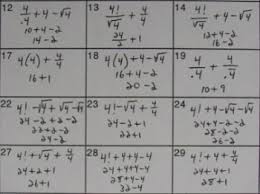 12
4/.4 + 4 - √4
10 + 4 - 2
14 - 2
13
4!/√4 + 4/4
24/2 + 1
14
4/.4 + 4 - √4
10 + 4 - 2
17
4(4) + 4/4
16 + 1
18
4(4) + 4 - √4
16 + 4 - 2
20 - 2
19
4/.4 + 4/.4
10 + 9
22
4! - √4 + √4 - √4
24 - 2 + 2 - 2
22 + 2 - 2
24 - 2
23
4! - √4 + 4/4
24 - 2 + 1
22 + 1
24
4! + 4 - √4 - √4
24 + 4 - 2 - 2
28 - 2 - 2
26 - 2
27
4! + √4 + 4/4
24 + 2 + 1
26 + 1
28
4! + 4 + 4 - 4
24 + 4 + 4 - 4
28 + 4 - 4
32 - 4
29
4! + 4 + 4/4
24 + 4 + 1
28 + 1